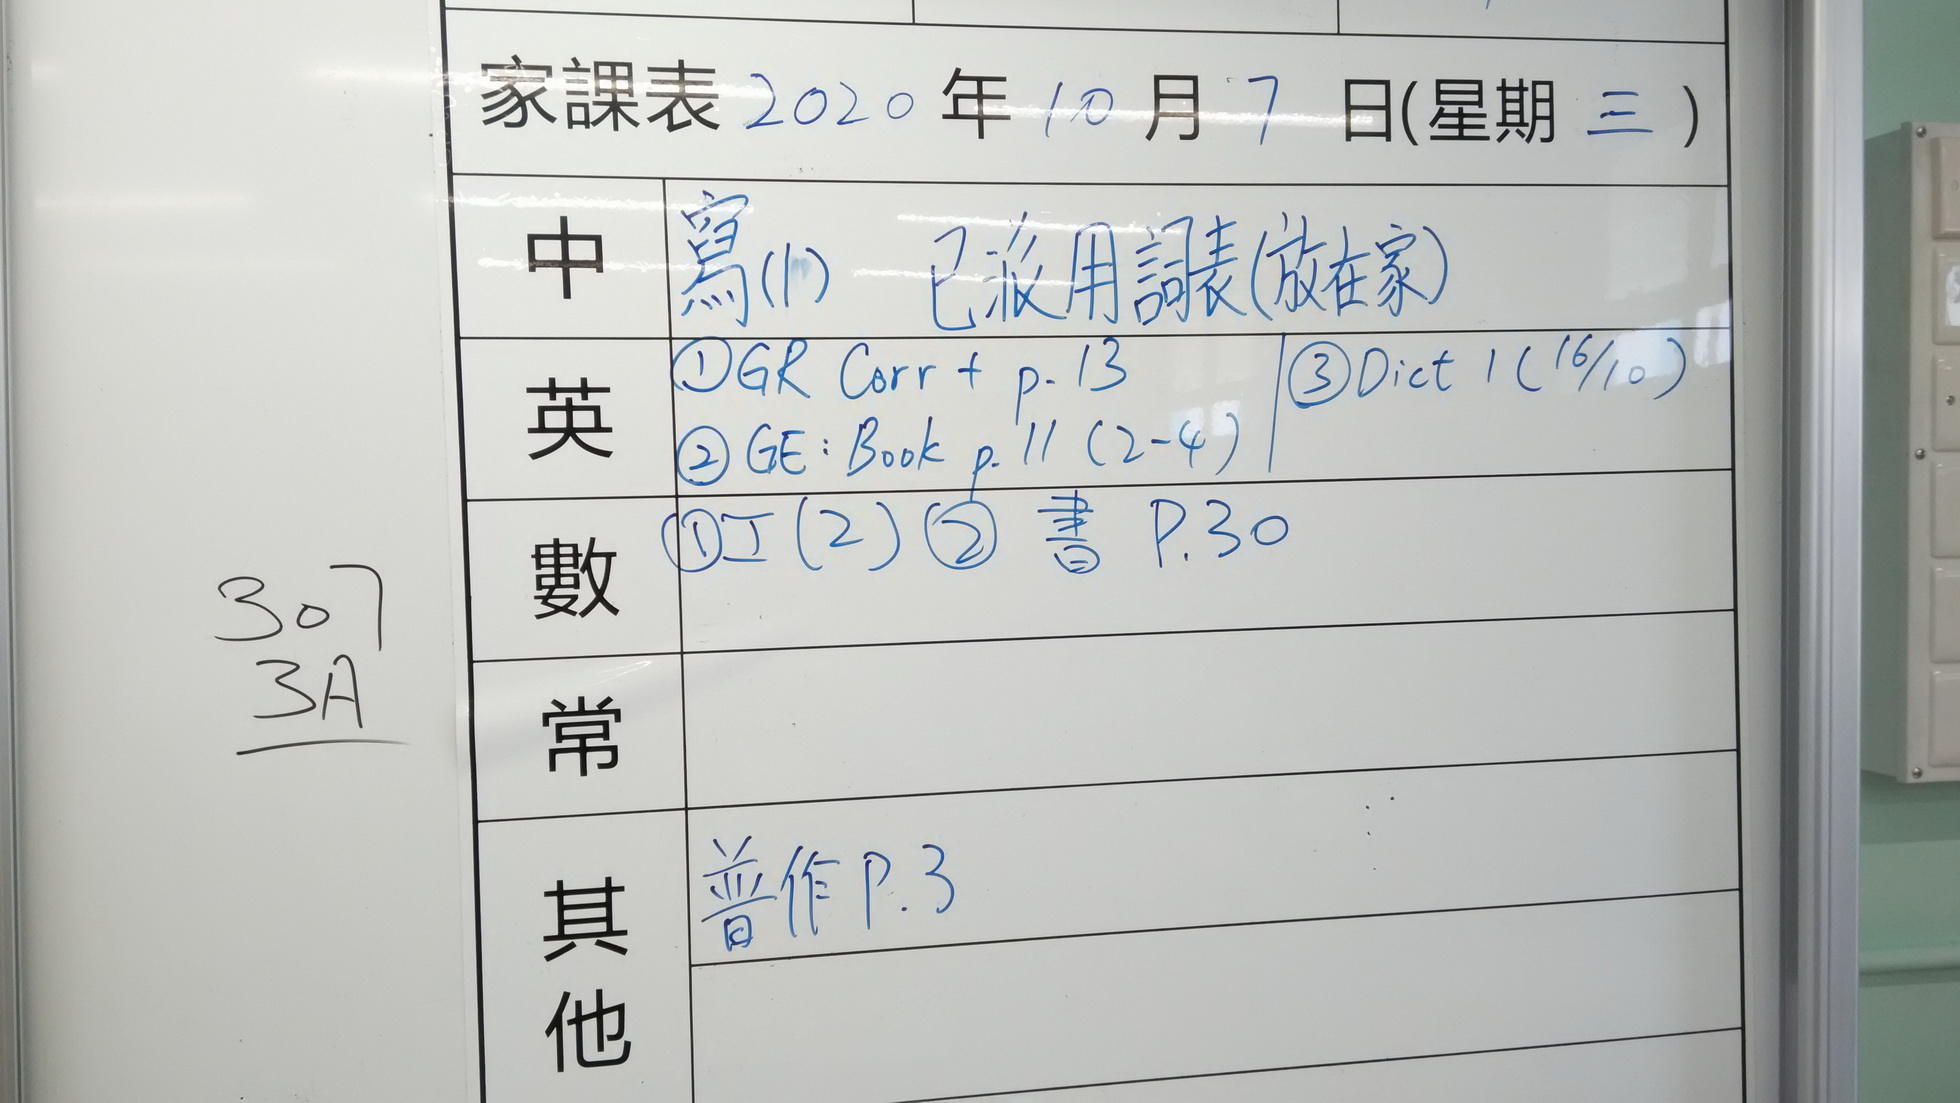 家課表 2020 年 10 月 7 日(星期 三)
中 寫(1) 已派用詞表(放在家)
英 ①GR Corr + p.13 ③Dict 1 (16/10)
②GE: Book p.11 (2-4)
數 ①工(2) ② 書 P.30
307
3A
常
其他 普作 P.3